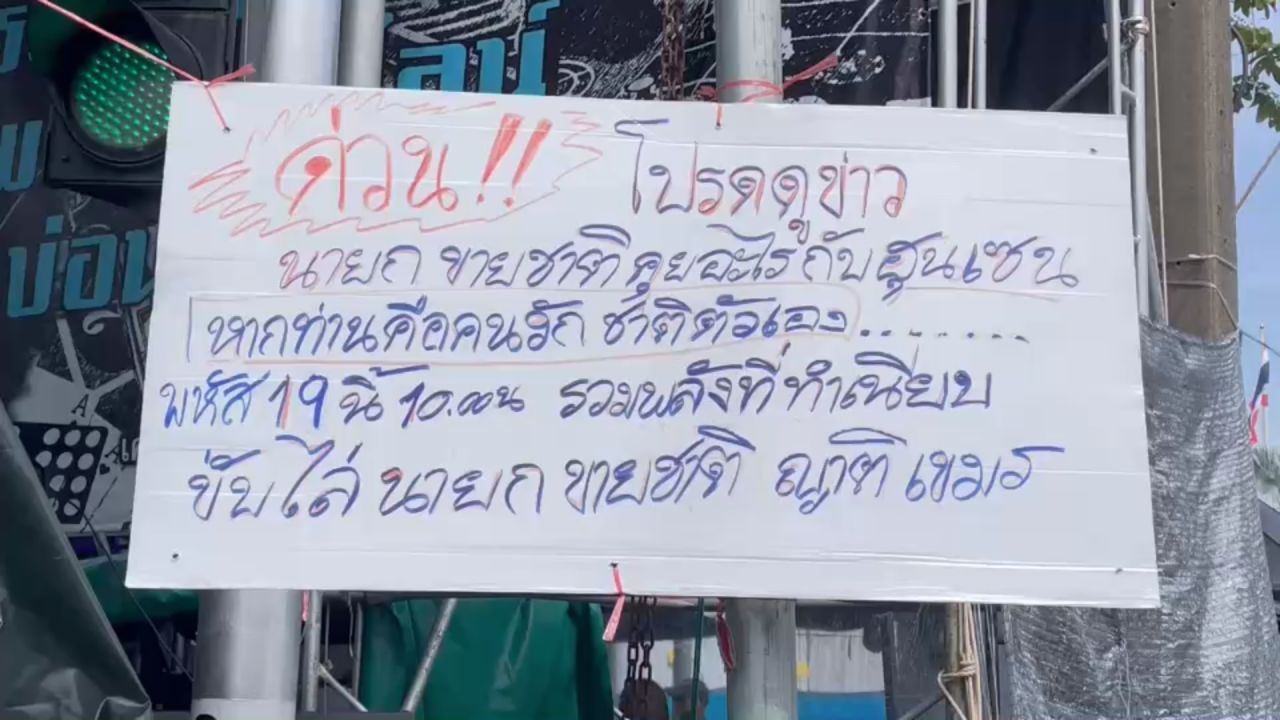 ด่วน!! โปรดดูข่าว
นายก ขายชาติ คุยอะไรกับฮุนเซน
หากท่านคือคนรัก ชาติตัวเอง........
พหัส 19 นี้ 10.00น รวมพลังที่ ทำเนียบ
ขับไล่ นายก ขายชาติ ญาติ เขมร